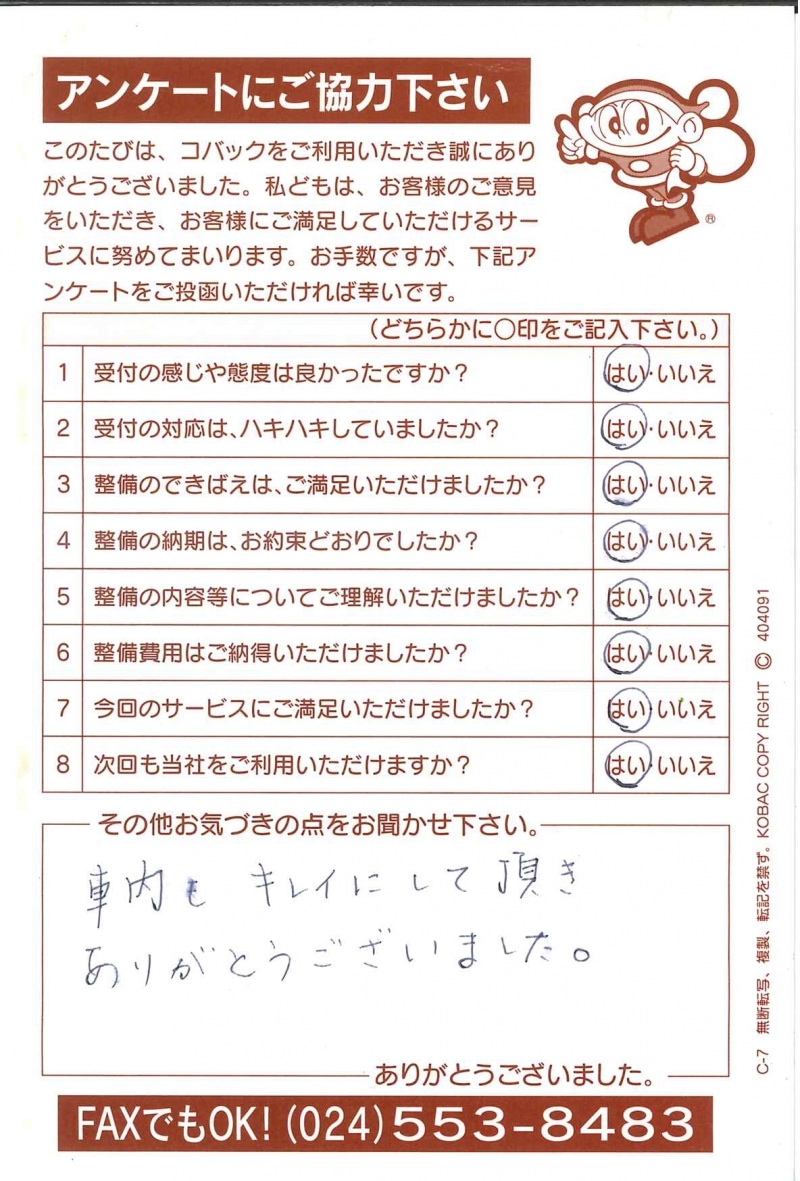 アンケートにご協力下さい
このたびは、コバックをご利用いただき誠にあり
がとうございました。私どもは、お客様のご意見
をいただき、お客様にご満足していただけるサー
ビスに努めてまいります。お手数ですが、下記ア
ンケートをご投函いただければ幸いです。
®
(どちらかに○印をご記入下さい。)
1 受付の感じや態度は良かったですか? はい・いいえ
2 受付の対応は、ハキハキしていましたか? はい・いいえ
3 整備のできばえは、ご満足いただけましたか? はい・いいえ
4 整備の納期は、お約束どおりでしたか? はい・いいえ
5 整備の内容等についてご理解いただけましたか? はい・いいえ
6 整備費用はご納得いただけましたか? はい・いいえ
7 今回のサービスにご満足いただけましたか? はい・いいえ
8 次回も当社をご利用いただけますか? はい・いいえ
その他お気づきの点をお聞かせ下さい。
車内も キレイにして頂き
ありがとうございました。
ありがとうございました。
FAXでもOK!(024)553-8483
C-7 無断転写、複製、転記を禁ず。KOBAC COPY RIGHT © 404091